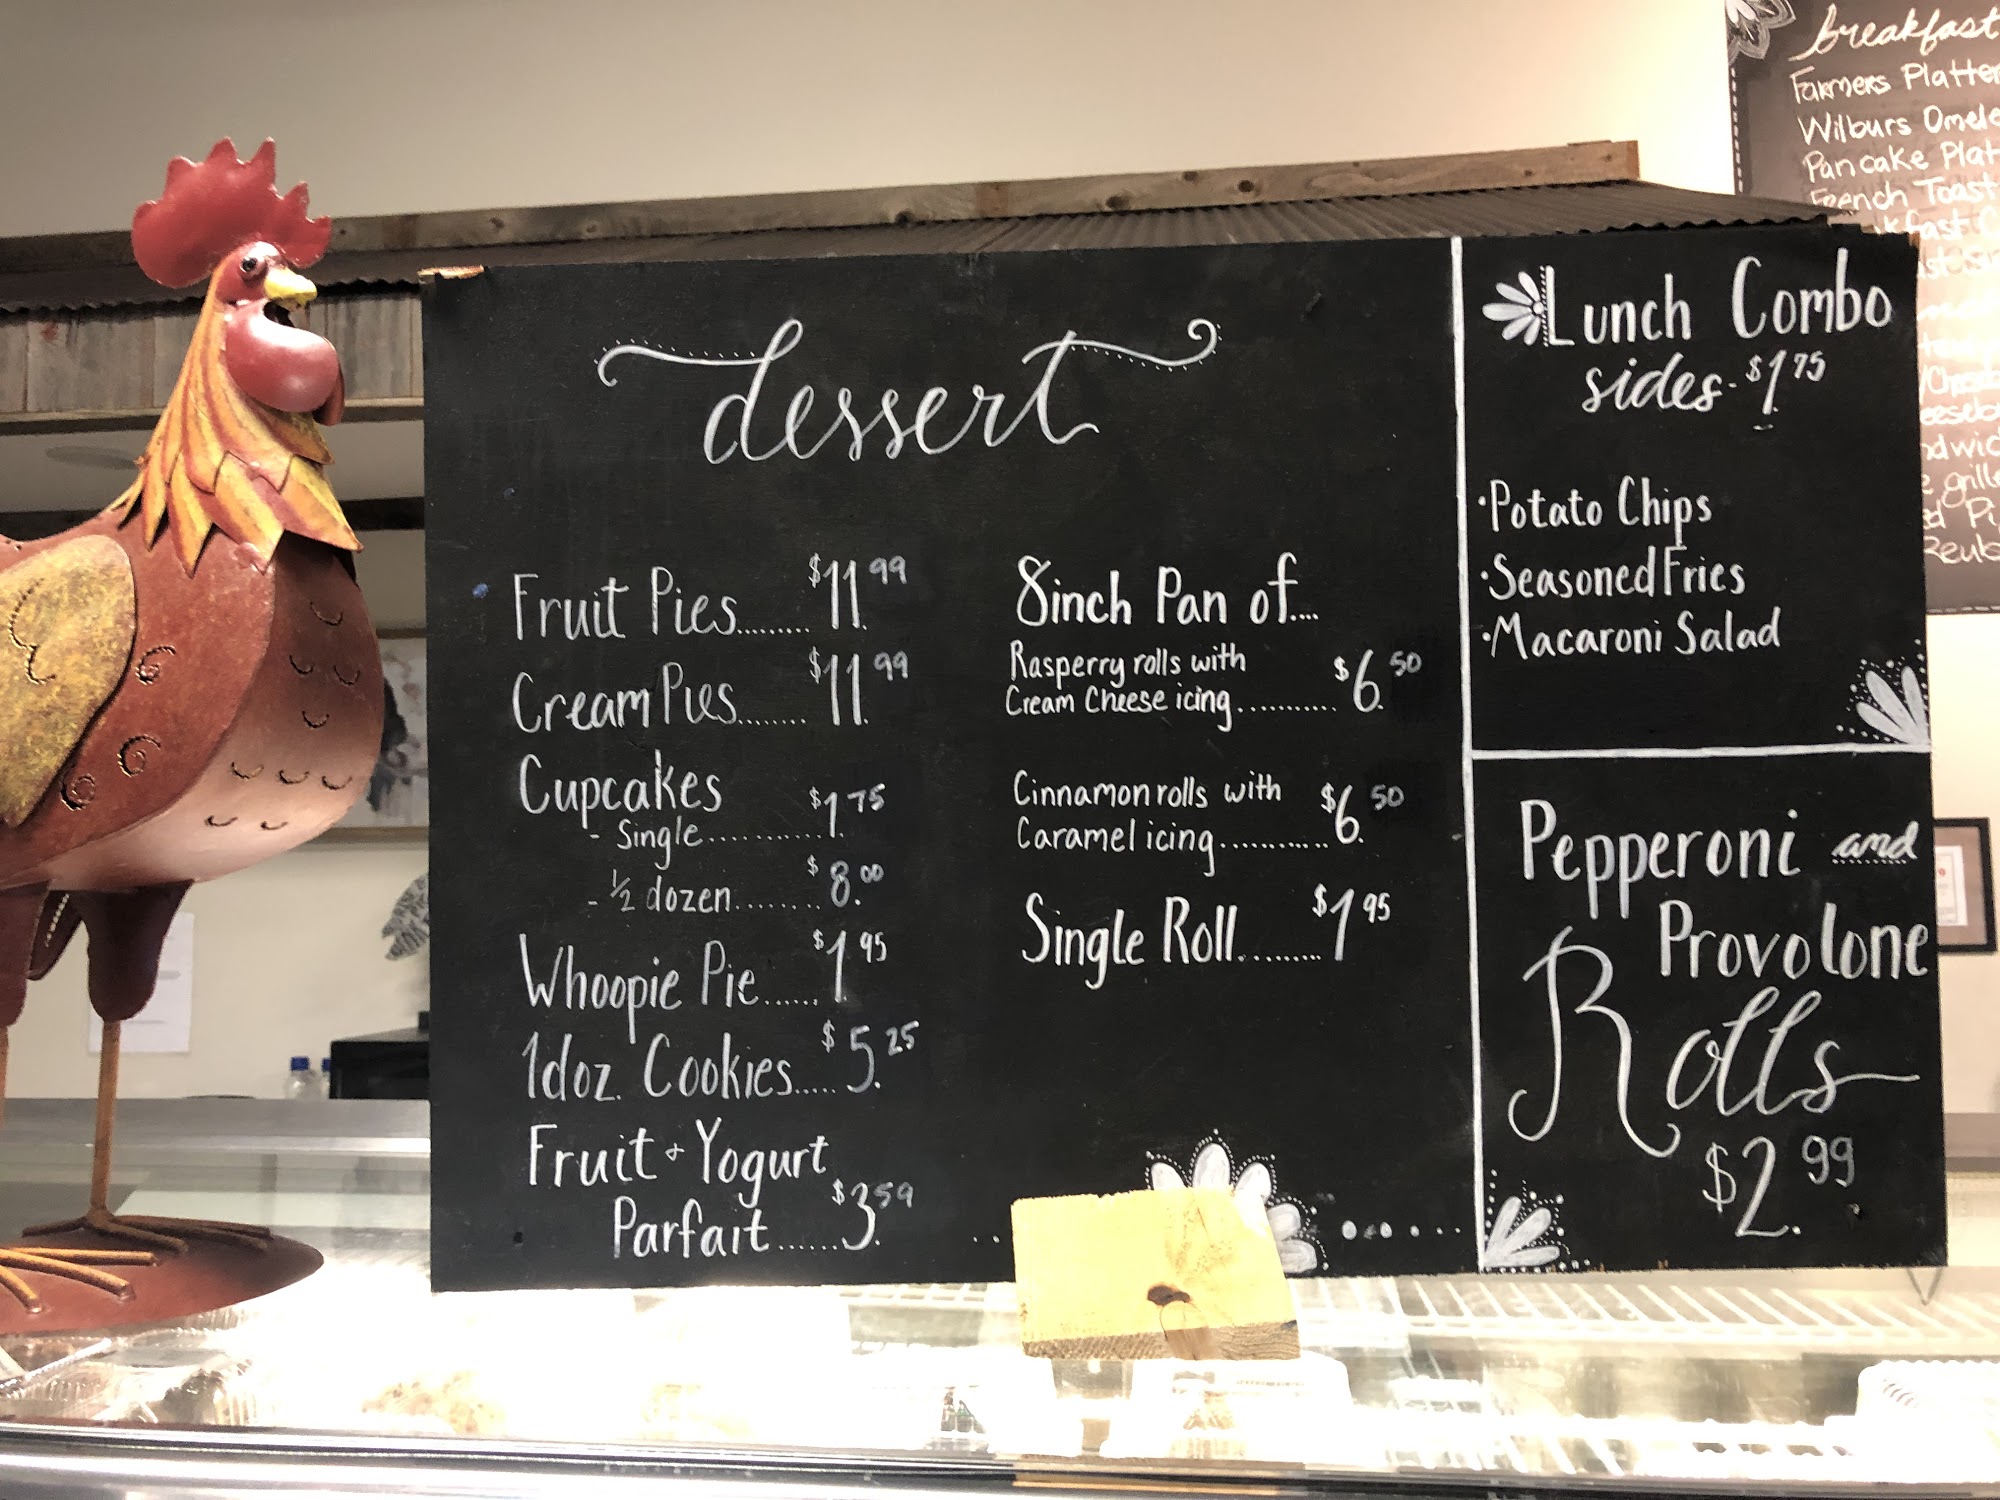 dessert
Fruit Pies......... $11.99
Cream Pies........ $11.99
Cupcakes
- Single............ $1.75
- 1/2 dozen........ $8.00
Whoopie Pie...... $1.95
1doz. Cookies..... $5.25
Fruit + Yogurt
Parfait...... $3.59
8inch Pan of....
Rasperry rolls with
Cream Cheese icing.......... $6.50
Cinnamon rolls with
Caramel icing........... $6.50
Single Roll......... $1.95
Lunch Combo
sides - $1.75
·Potato Chips
·Seasoned Fries
·Macaroni Salad
Pepperoni and
Provolone
Rolls
$2.99
breakfast
Farmers Platter
Wilburs
Pancake
French Toast